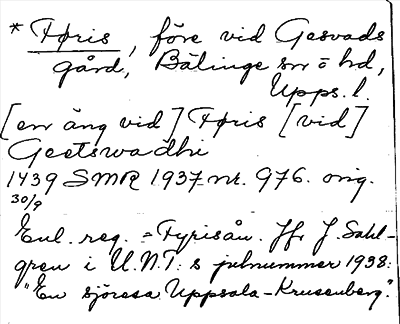 * Føris, före vid Gesvads
gård, Bälinge sn o hd,
Upps. l.
[en äng vid] Føris [vid]
Geetswadhi
1439 SMR 1937 nr. 976. orig.
30/9
Enl. reg. = Fyrisån. Jfr J. Sahl-
gren i U.N.T:s julnummer 1938:
"En sjöresa Uppsala-Krusenberg".